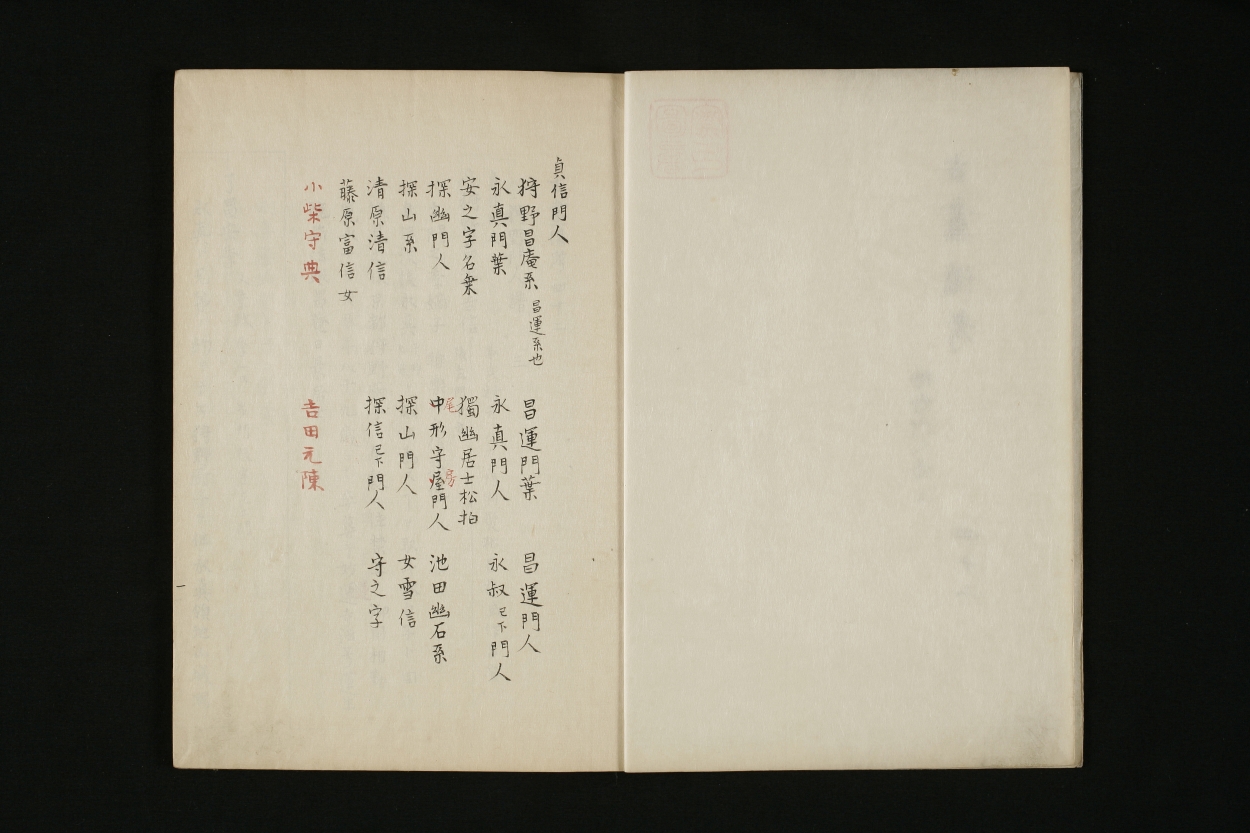 貞信門人
狩野昌庵系 昌運系也 昌運門葉 昌運門人
永真門葉 永真門人 永叔已下門人
安之字名乗 獨幽居士松柏
探幽門人 中形守屋門人 池田幽石系
尾 房
探山系 探山門人 女雪信
清原清信 探信已下門人 守之字
藤原富信女
小柴守典 吉田元陳